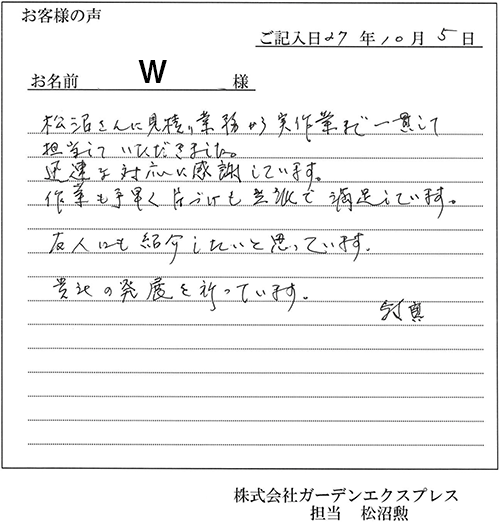 お客様の声
ご記入日27年10月5日
お名前 W 様
松沼さんに見積り業務から実作業まで一貫して
担当していただきました。
迅速な対応に感謝しています。
作業も手早く片づけも立派で満足しています。
友人にも紹介したいと思っています。
貴社の発展を祈っています。
株式会社ガーデンエクスプレス
担当 松沼勲